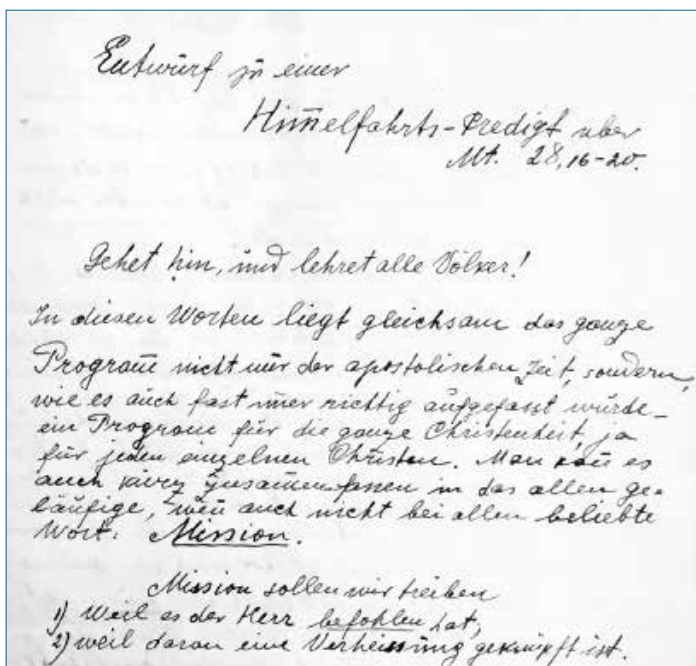 Entwurf zu einer
Him̄elfahrts-Predigt über
Mt. 28,16-20.
Gehet hin, und lehret alle Völker!
In diesen Worten liegt gleichsam das ganze
Program̄ nicht nur der apostolischen Zeit, sondern,
wie es auch fast im̄er richtig aufgefasst wurde-
ein Program̄ für die ganze Christenheit, ja
für jeden einzelnen Christen. Man kan̄ es
auch kurz zusam̄enfassen in das allen ge-
läufige, wen̄ auch nicht bei allen beliebte
Wort: Mission.
Mission sollen wir treiben
1) Weil es der Herr befohlen hat,
2) weil daran eine Verheissung geknüpft ist.